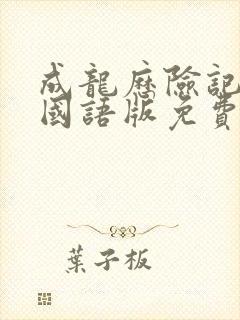 成龍歷險記
國語版免費
葉子板